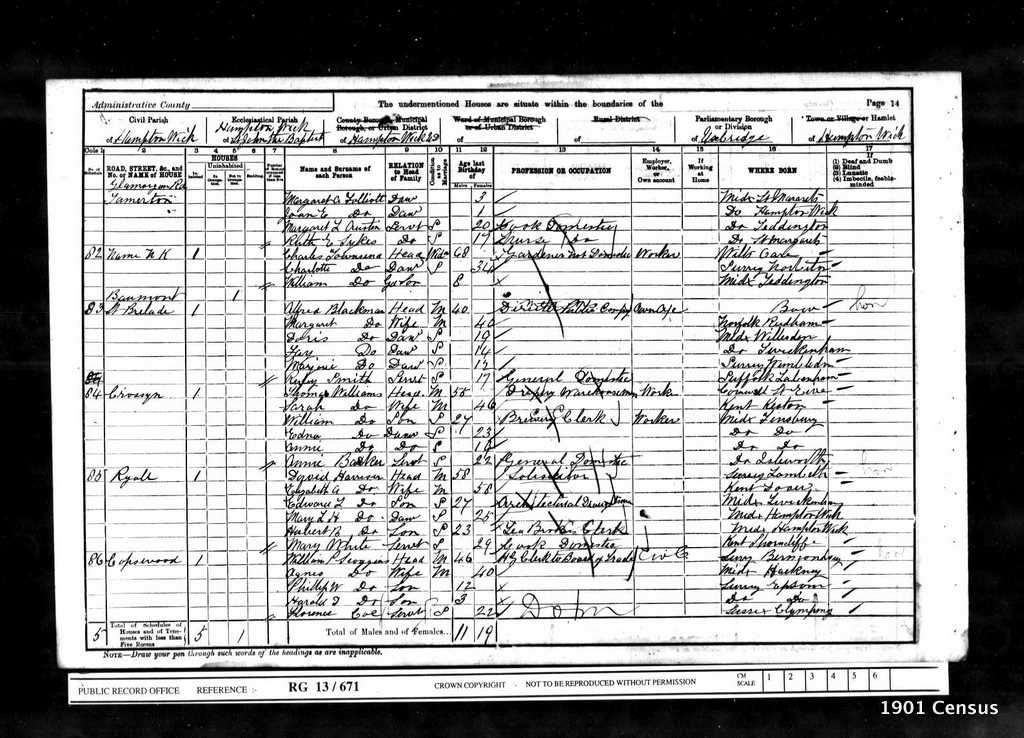 Administrative County
The undermentioned Houses are situate within the boundaries of the
Page 14
Civil Parish
of Hampton Wick
Ecclesiastical Parish
Hampton Wick
of St John the Baptist
County Borough, Municipal Borough, or Urban District
of Hampton Wick
Ward of Municipal Borough or of Urban District
of
Rural District
of
Parliamentary Borough or Division
of Uxbridge
Town or Village or Hamlet
of Hampton Wick
Cols. 1 2 3 4 5 6 7 8 9 10 11 12 13 14 15 16 17
No. of Schedule
ROAD, STREET, &c., and No. or NAME of HOUSE
HOUSES
Inhabited
Uninhabited
In Occupation
Not in Occupation
Building
Name and Surname of each Person
RELATION to Head of Family
Condition as to Marriage
Age last Birthday of
Males Females
PROFESSION OR OCCUPATION
Employer, Worker, or Own account
If Working at Home
WHERE BORN
(1) Deaf and Dumb
(2) Blind
(3) Lunatic
(4) Imbecile, feeble-minded
Glamorgan Rd
Tamerton Margaret A Daw 3 Midx St Margarets
Do Daw 1 Do Hampton Wick
Margaret L Servt S 20 Cook Domestic Do Teddington
Ruth E Sykes Do S 17 Nurse Do Do St Margarets
82 Name N K 1 Charles Townsend Head Widr 68 Gardener not Domestic Worker Wilts
Charlotte Do Daw S 34 Surrey Norbiton
William Do 8 Midx Teddington
Baumont 1
83 St Brelade 1 Alfred Blackman Head M 40 Director Own Bow
Margaret Do Wife M 40 Norfolk Reedham
Doris Do Daw S 19 Midx Willesden
Do Daw S 14 Do Twickenham
Marjorie Do Daw S 12 Surrey Wimbledon
Smith Servt S 17 General Domestic Suffolk
84 1 Thomas Williams Head M 55 Drapery Warehouseman Worker Cornwall St
Sarah Do Wife M 46 Kent Keston
William Do Son S 27 Brewery Clerk Worker Midx Finsbury
Edna Do Daw S 23 Do Do
Annie Do Do S 16 Do Do
Annie Barker Servt S 22 General Domestic Do Isleworth
85 Ryall 1 David Head M 58 Solicitor Surrey Lambeth
Elizabeth A Do Wife M 58 Kent Dover
Edward L Do Son S 27 Architectural Draughtsman Midx Twickenham
Mary H Do Daw S 25 Midx Hampton Wick
Hubert Do Son S 23 Tea Broker Clerk Midx Hampton Wick
Mary White Servt S 29 Cook Domestic Kent Shorncliffe
86 Copsewood 1 William Head M 46 Clerk to Board of Trade Surrey Bermondsey
Agnes Do Wife M 40 Midx Hackney
Philip W Do Son 12 Surrey Epsom
Harold Do Son 3 Do Do
Florence Coe Servt S 22 Dom Sussex Clymping
5 Total of Schedules of Houses and of Tenements with less than Five Rooms 5 1 Total of Males and of Females... 11 19
NOTE—Draw your pen through such words of the headings as are inapplicable.
PUBLIC RECORD OFFICE REFERENCE :- RG 13/671 CROWN COPYRIGHT - NOT TO BE REPRODUCED WITHOUT PERMISSION CM SCALE 1 2 3 4 5 6
1901 Census